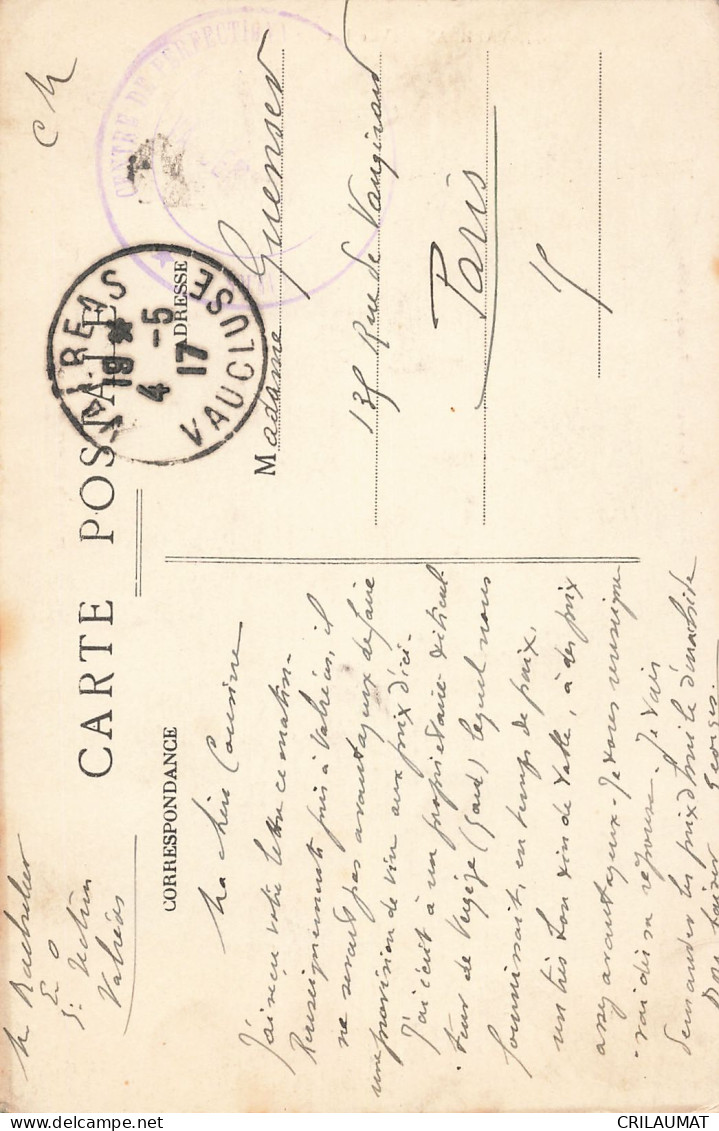 CARTE POSTALE
CORRESPONDANCE
ADRESSE
CENTRE DE PERFECTION
VALREAS
19 *
4 -5
17
VAUCLUSE
Madame Guenser
135 Rue de Vaugirard
Paris
15
Valréas
Ma chère Cousine
J'ai reçu votre lettre ce matin.
Renseignements pris à Valréas, il
ne serait pas avantageux de faire
une provision de vin aux prix d'ici.
J'ai écrit à un propriétaire viticul-
teur de Vergèze (Gard) lequel nous
fournissait, en temps de paix,
un très bon vin de table, à des prix
assez avantageux. Je vous
sa réponse. Je vais
demander les prix d'huile d'
Bons baisers Georges
CRILAUMAT